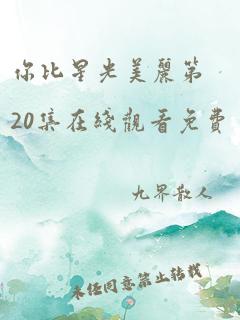 你比星光美麗第
20集在綫觀看免費
九界散人
未经同意禁止转载